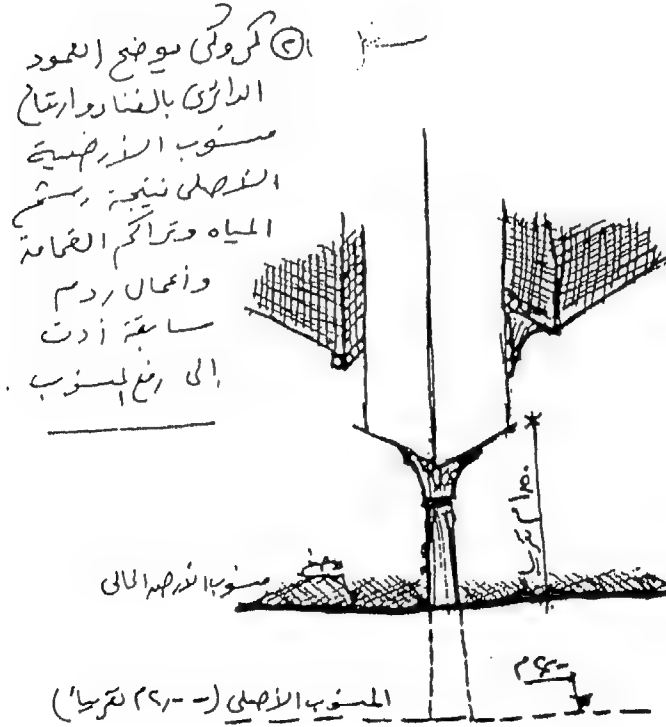 ② كروكى يوضح العمود
الدائرى بالفناء وارتفاع
منسوب الأرضية
الأصلى نتيجة رشح
المياه وتراكم القمامة
وأعمال ردم
سابقة أدت
إلى رفع المنسوب .
تقريبا
منسوب الأرض الحالى
المنسوب الأصلى (-ر٢م تقريبا)